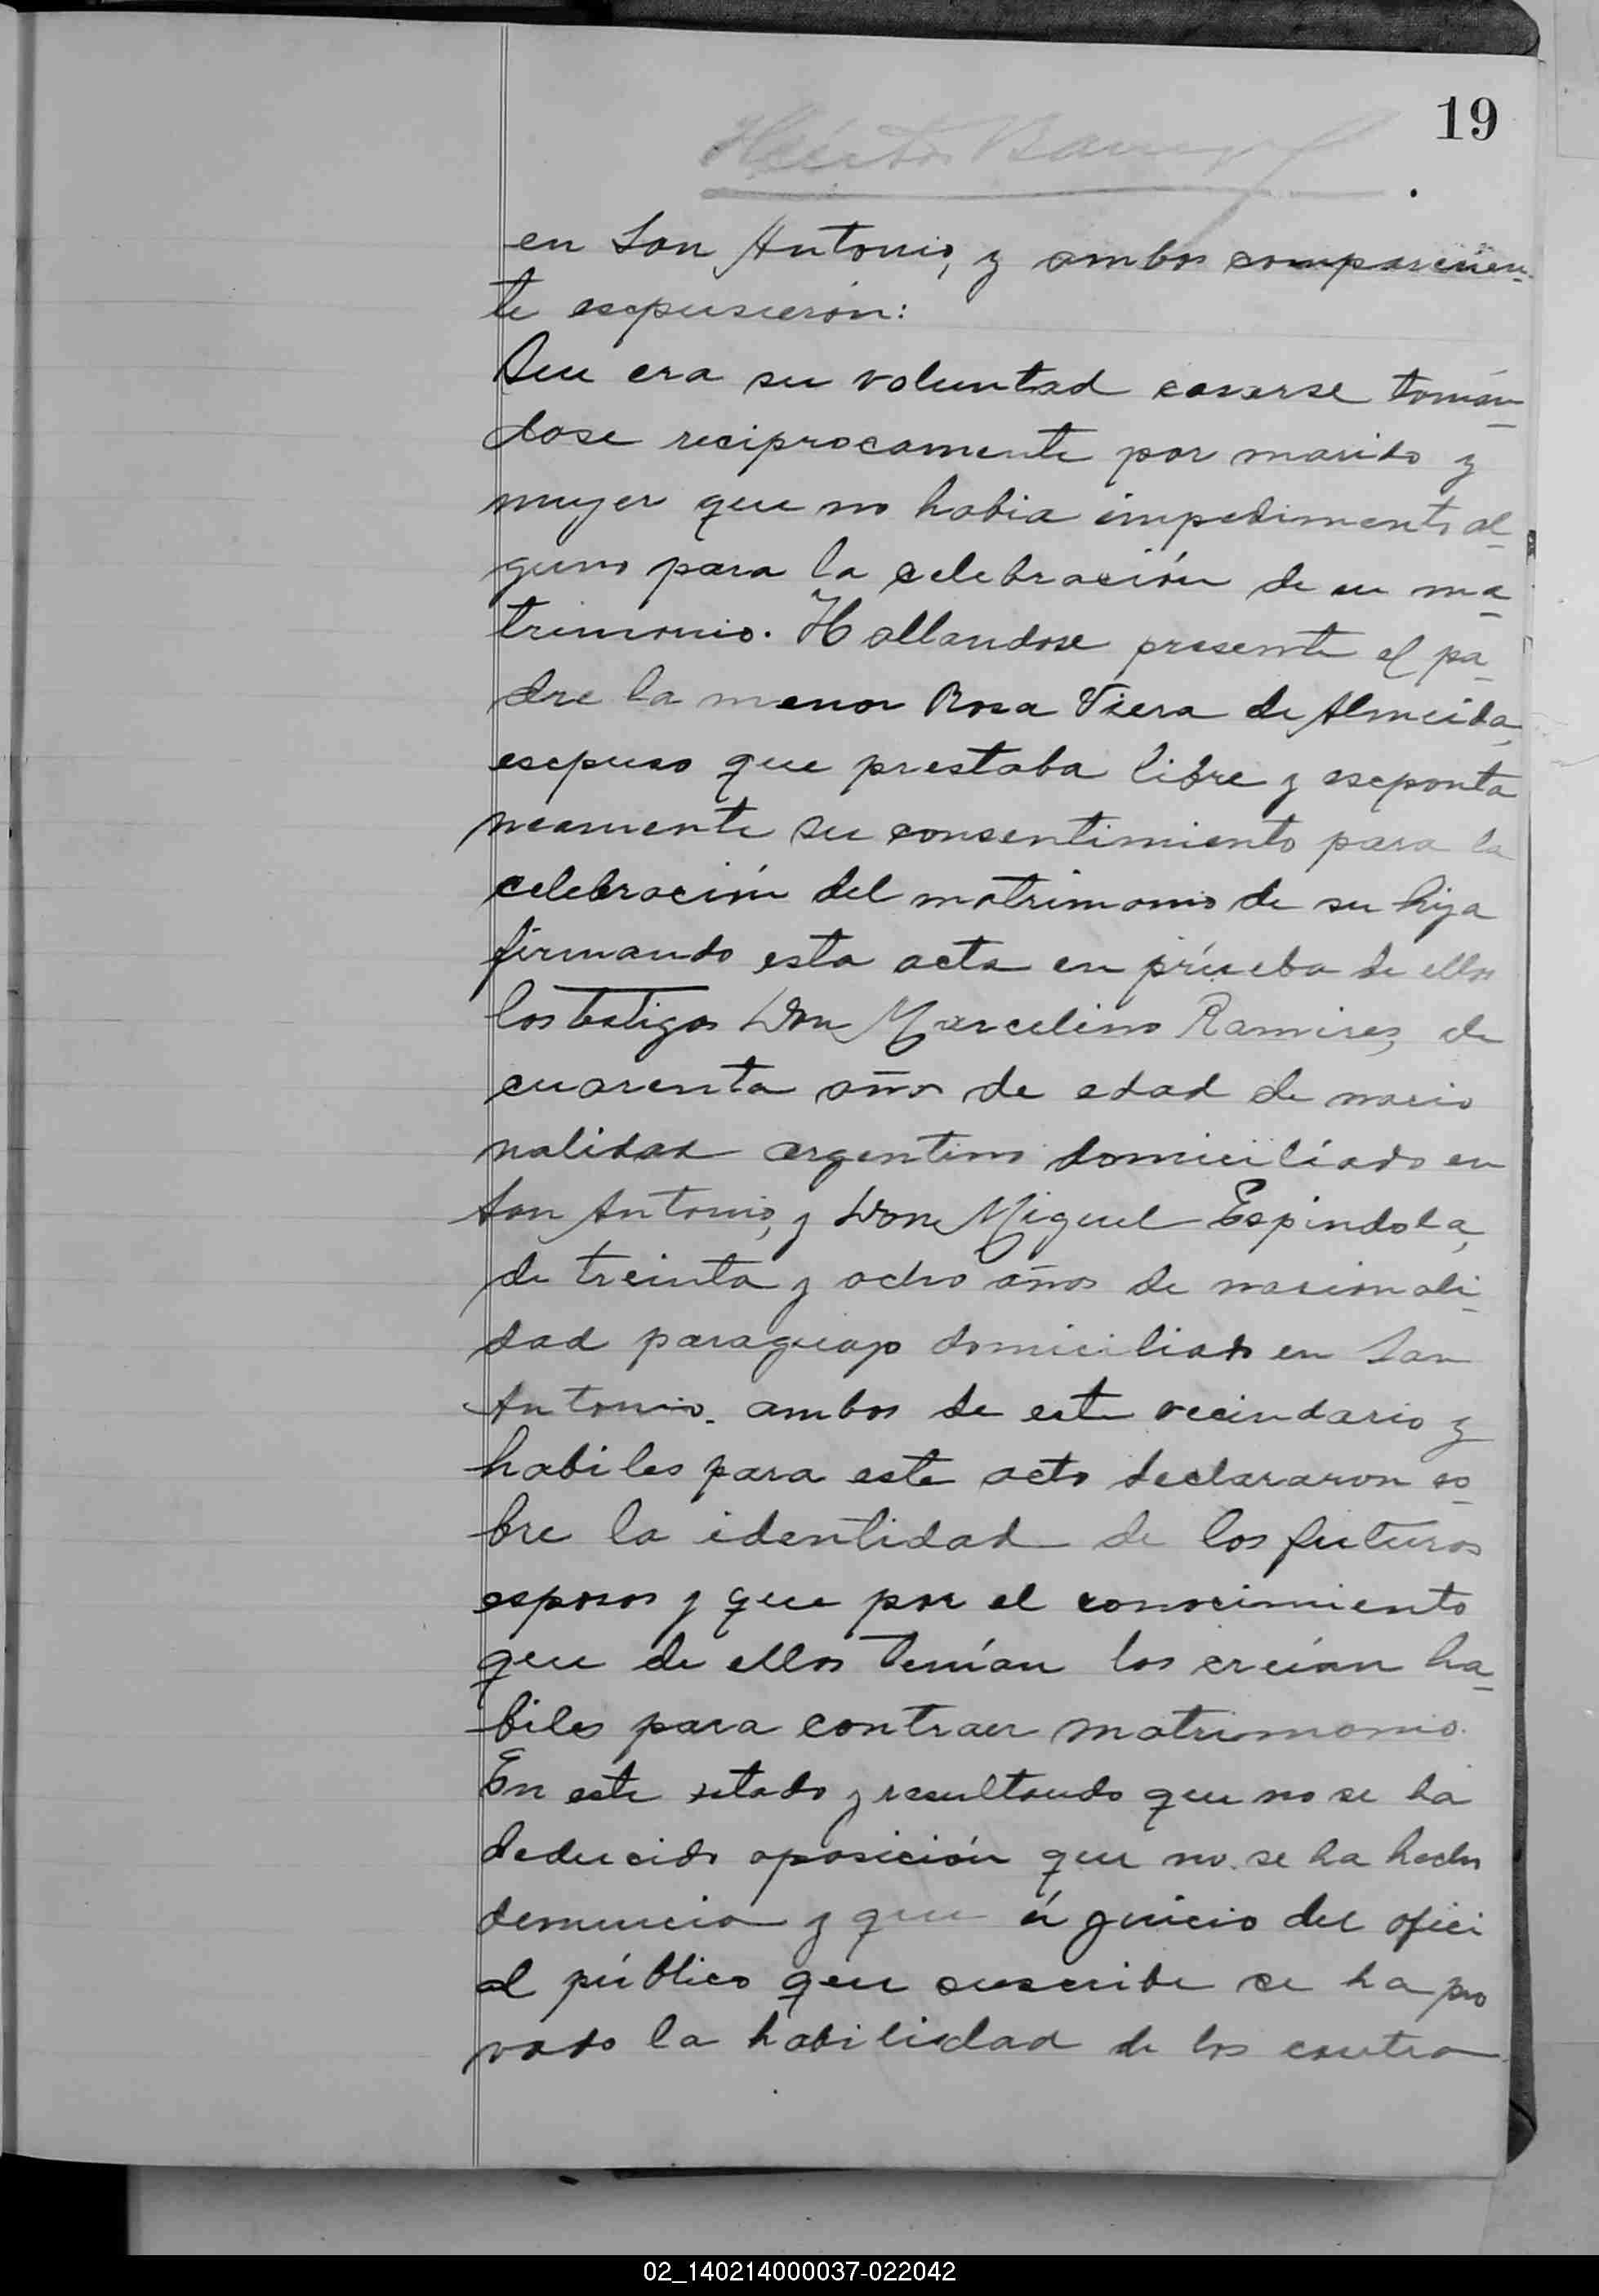 19
Héctor
en San Antonio, y ambos comparecien-
te espusierón:
Que era su voluntad casarse tomán-
dose reciprocamente por marido y
mujer que no habia impedimento al-
guno para la celebración de su ma-
trimonio. Hallandose presente el pa-
dre la menor Rosa Viera de Almeida,
espuso que prestaba libre y esponta
neamente su consentimiento para la
celebración del matrimonio de su hija
firmando esta acta en prúeba de ellos
los testigos Don Marcelino Ramires, de
cuarenta años de edad de nacio
nalidad argentino domiciliado en
San Antonio, y Don Miguel Espindola,
de treinta y ocho años de nacionali-
dad paraguayo domiciliado en San
Antonio. ambos de este vecindario y
habiles para este acto declararon so-
bre la identidad de los futuros
esposos y que por el conocimiento
que de ellos tenían los creían ha-
biles para contraer matrimonio.
En este estado y resultando que no se ha
deducido oposición que no se ha hecho
denuncia y que á juicio del ofici
al público que suscribe se ha pro
vado la habilidad de los contra
02_140214000037-022042